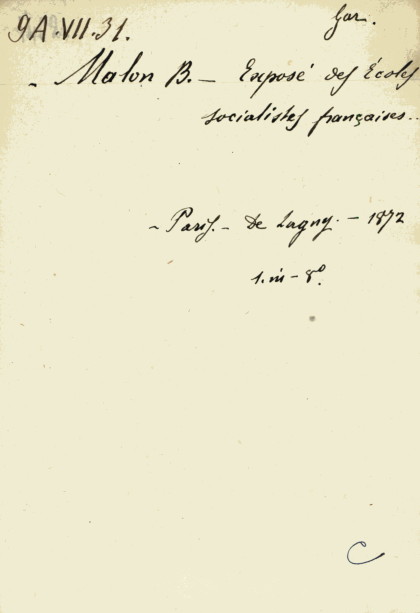 Gar.
9A.VII.31.
- Malon B. - Exposé des Écoles
socialistes françaises..
- Paris. - De Lagny. - 1872
1. in - 8º.
C